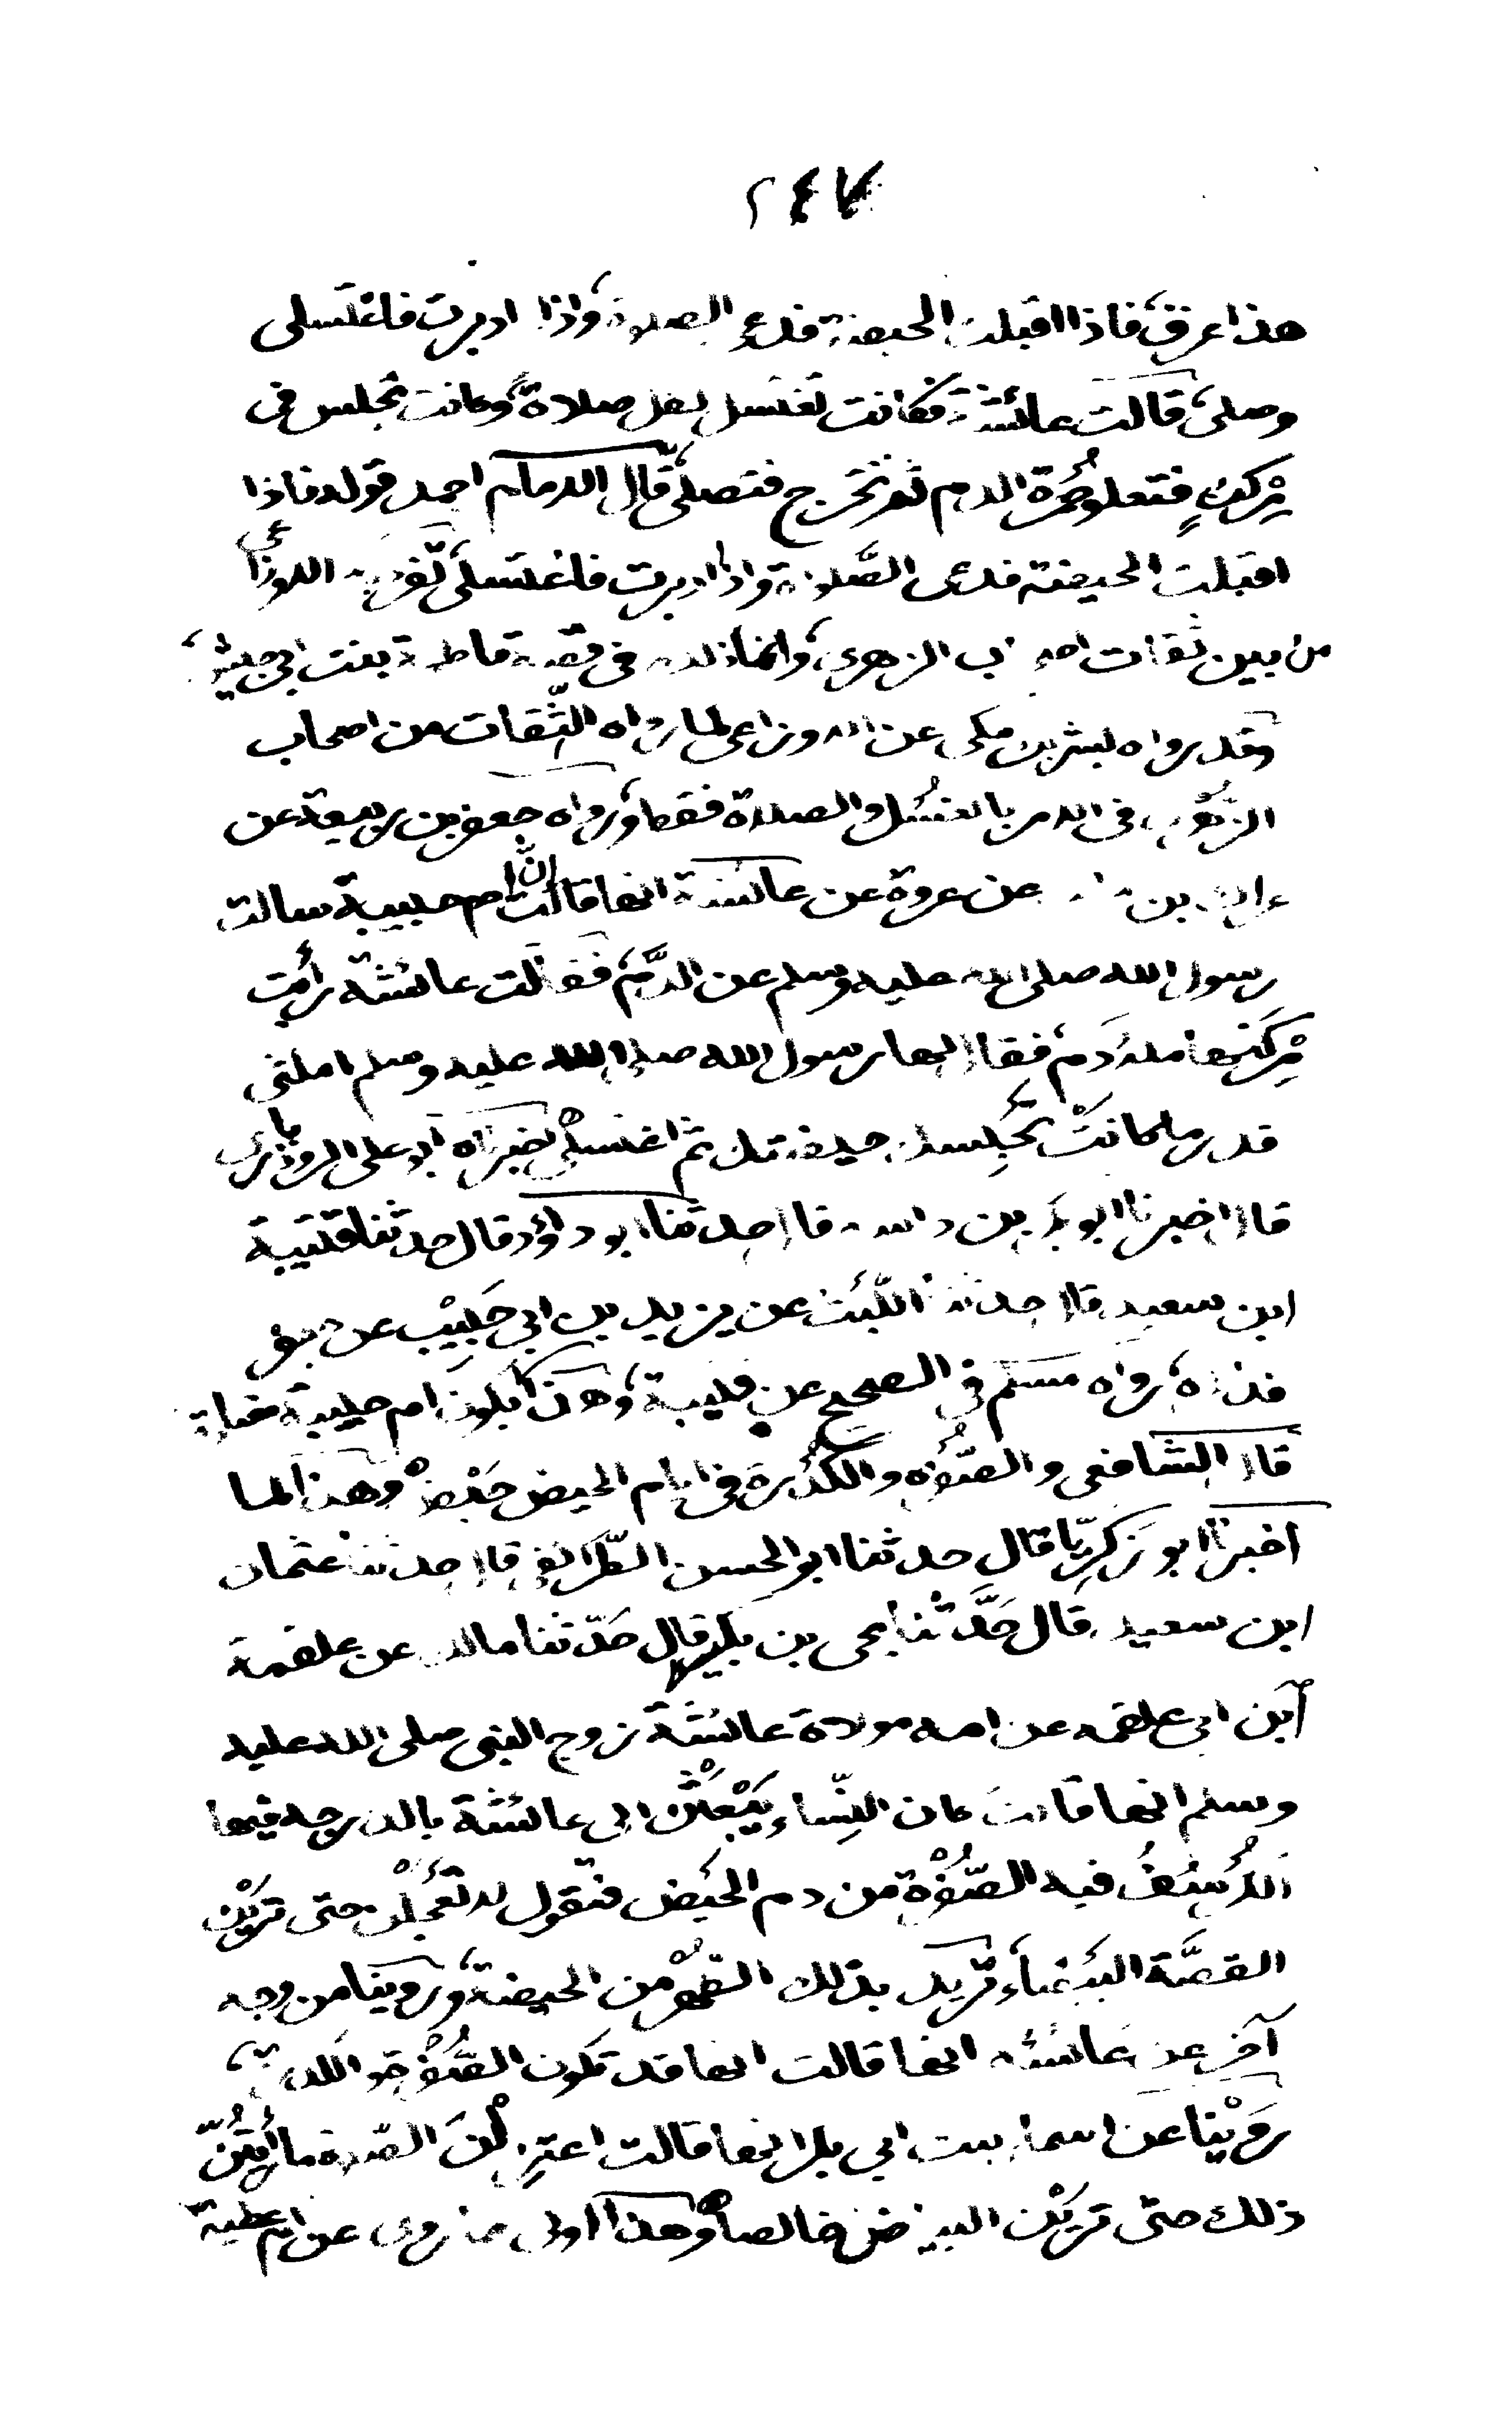 ٢٤٧
هذا عرق، فاذا اقبلت الحيضة فدعى الصلاة، واذا ادبرت فاغتسلى
وصلى، قالت عائشة فكانت تغتسل لكل صلاة، وكانت تجلس فى
مركن فتعلو حمرة الدم ثم تخرج فتصلى، قال الامام احمد قوله فاذا
اقبلت الحيضة فدعى الصلاة واذا ادبرت فاغتسلى تفرد به الاوزاعى
من بين ثقات اصحاب الزهرى، وانما ذلك فى قصة فاطمة بنت ابى حبيش،
وقد رواه بشر بن مكى عن الاوزاعى كما رواه الثقات من اصحاب
الزهرى فى الامر بالغسل والصلاة فقط، ورواه جعفر بن ربيعة عن
عراك بن عن عروة عن عائشة انها قالت ان ام حبيبة سالت
رسول الله صلى الله عليه وسلم عن الدم، فقالت عائشة رأيت
مركنها ملآ دم، فقال لها رسول الله صلى الله عليه وسلم امكثى
قدر ما كانت تحبسك حيضتك ثم اغتسلى اخبرناه ابو على الروذبارى
قال اخبرنا ابو بكر بن داسه قال حدثنا ابو داؤد قال حدثنا قتيبة
ابن سعيد قال حدثنا الليث عن يزيد بن ابى حبيب عن جعفر
فذكره، رواه مسلم فى الصحيح عن قتيبة، وهذا لكون ام حبيبة
قال الشافعى والصفرة والكدرة فى ايام الحيض حيض وهذا لما
اخبرنا ابو زكريا قال حدثنا ابو الحسن الطرائفى قال حدثنا عثمان
ابن سعيد قال حدثنا يحى بن بكير قال حدثنا مالك عن علقمة
ابن ابى علقمه عن امه مولاة عائشة زوج النبى صلى الله عليه
وسلم انها قالت كان النساء يبعثن الى عائشة بالدرجه فيها
الكرسف فيه الصفرة من دم الحيض فتقول لا تعجلن حتى ترين
القصة البيضاء، تريد بذلك الطهر من الحيضة، وروينا من وجه
آخر عن عائشه انها قالت انها قد تكون الصفرة والكدرة،
روينا عن اسماء بنت ابى بكر انها قالت اعتزلن الصلاة ما رأيتن
ذلك حتى ترين البياض خالصا وهذا اولى مما روى عن ام عطية